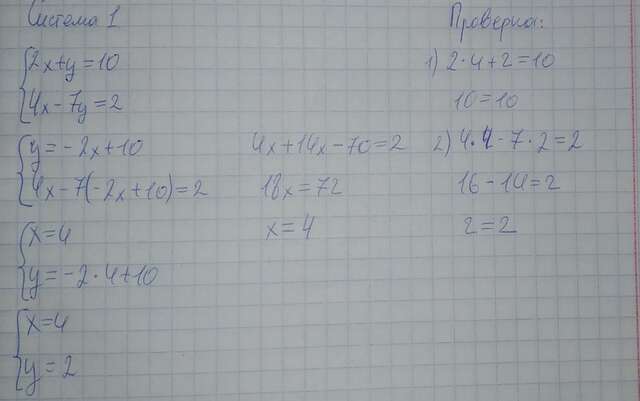 Система 1
{2x+y=10
{4x-7y=2
{y=-2x+10
{4x-7(-2x+10)=2
{x=4
{y=-2·4+10
{x=4
{y=2
4x+14x-70=2
18x=72
x=4
Проверка:
1) 2·4+2=10
10=10
2) 4·4-7·2=2
16-14=2
2=2